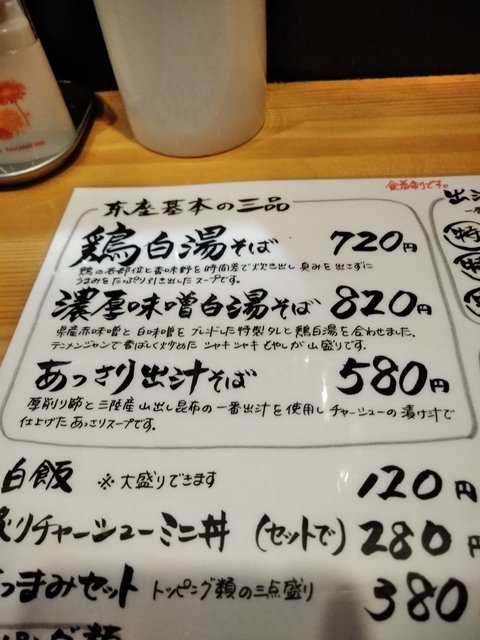 東座基本の三品
鶏白湯そば 720円
鶏の各部位と香味野を時間差で炊き出し臭みを出さずに
うまみをたっぷり引き出したスープです。
濃厚味噌白湯そば 820円
県産赤味噌と白味噌をブレンドした特製タレと鶏白湯を合わせました。
テンメンジャンで香ばしく炒めたシャキシャキもやしが山盛りです。
あっさり出汁そば 580円
厚削り節と三陸産山出し昆布の一番出汁を使用しチャーシューの漬け汁で
仕上げたあっさりスープです。
白飯 ※大盛りできます 120円
炙りチャーシューミニ丼 (セットで) 280円
つまみセット トッピング類の三点盛り 380
出汁
特
特